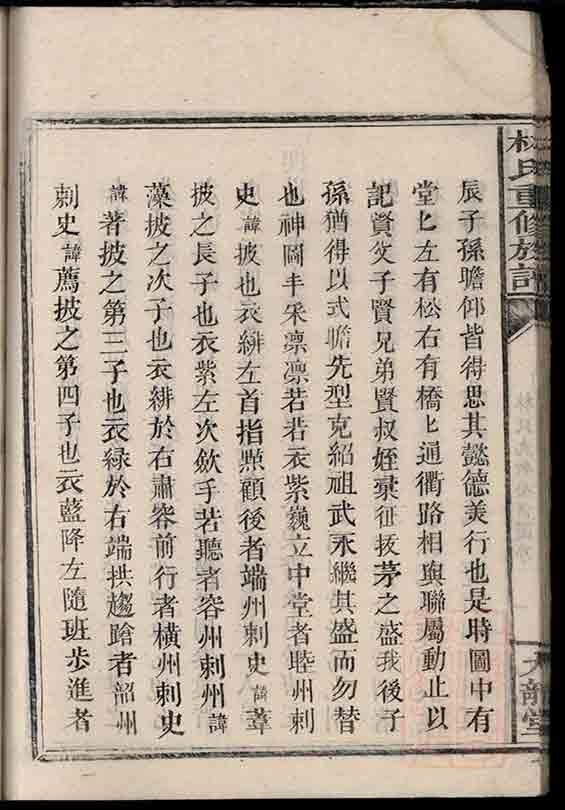 林氏重修族譜
辰子孫瞻仰皆得思其懿德美行也是時圖中有
堂匕左有松右有橋匕通衢路相與聯屬動止以
記賢父子賢兄弟賢叔姪彚征拔茅之盛我後子
孫猶得以式瞻先型克紹祖武永繼其盛而勿替
也神圖丰采凛凛若若衣紫巍立中堂者睦州刺
史諱披也衣緋左首指㸃顧後者端州刺史諱葦
披之長子也衣紫左次斂手若聽者容州刺州諱
藻披之次子也衣緋於右肅容前行者橫州刺史
諱著披之第三子也衣綠於右端拱趨蹌者韶州
刺史諱薦披之第四子也衣藍降左隨班步進者
九龍堂